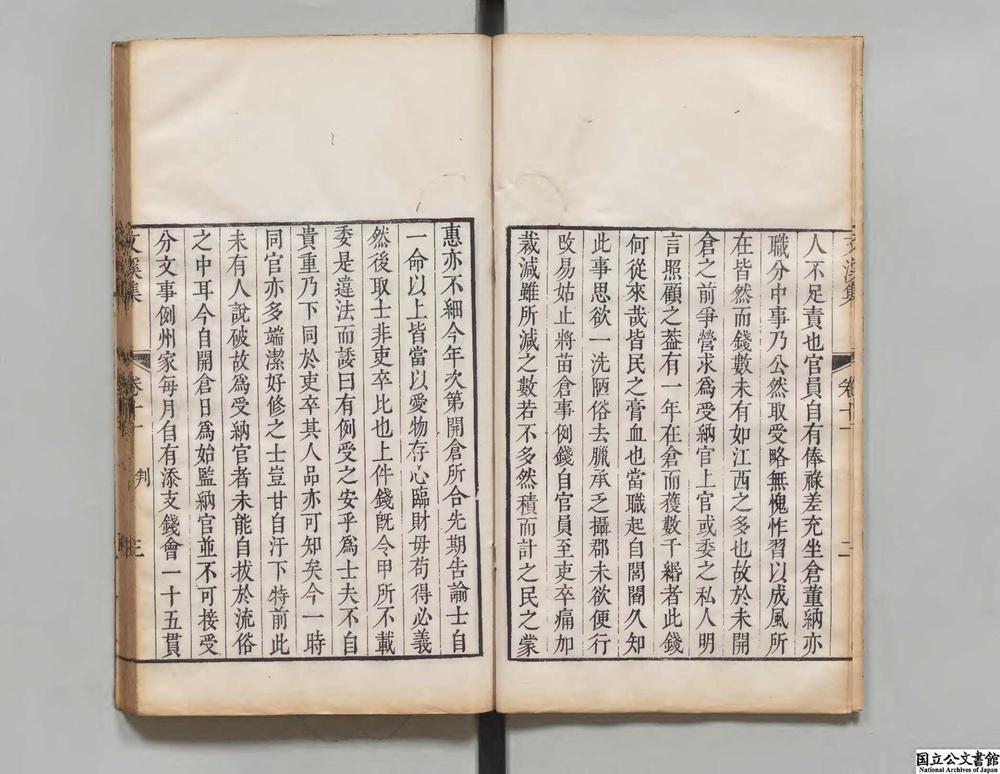 人不足責也官員自有俸祿差充坐倉董納亦
職分中事乃公然取受略無愧怍習以成風所
在皆然而錢數未有如江西之多也故於未開
倉之前爭營求為受納官上官或委之私人明
言照顧之蓋有一年在倉而獲數千緡者此錢
何從來哉皆民之膏血也當職起自閭閻久知
此事思欲一洗陋俗去臘承乏攝郡未欲便行
改易姑止將苗倉事例錢自官員至吏卒痛加
裁減雖所減之數若不多然積而計之民之蒙
惠亦不細今年次第開倉所合先期告諭士自
一命以上皆當以愛物存心臨財毋苟得必義
然後取士非吏卒比也上件錢旣令甲所不載
委是違法而諉曰有例受之安乎為士夫不自
貴重乃下同於吏卒其人品亦可知矣今一時
同官亦多端潔好修之士豈甘自汙下特前此
未有人說破故為受納官者未能自拔於流俗
之中耳今自開倉日為始監納官並不可接受
分文事例州家每月自有添支錢會一十五貫
文溪集
卷十
判
三
国立公文書館
National Archives of Japan